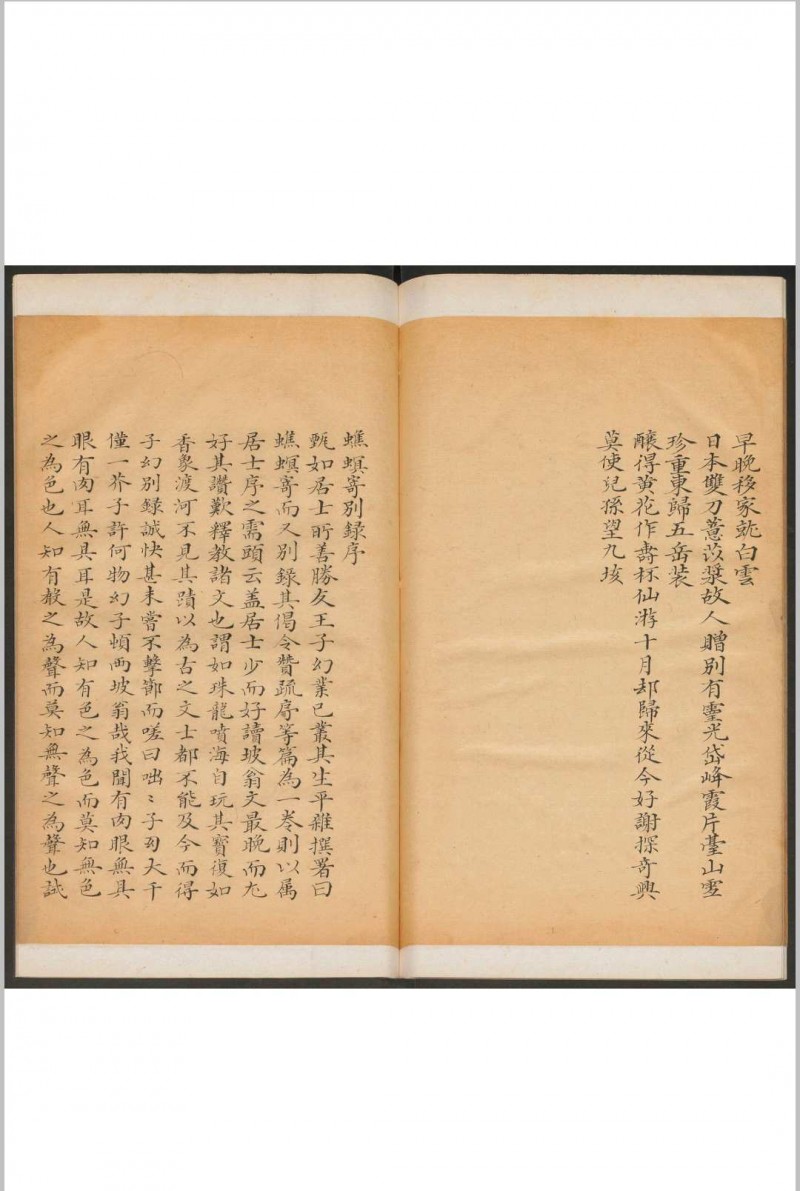 早晚移家就白雲
日本雙刀薏苡漿故人贈別有靈光岱峰霞片臺山雪
珍重東歸五岳裝
釀得黃花作壽杯仙游十月却歸來從今好謝探奇興
莫使兒孫望九垓
蟭螟寄別録序
甄如居士所善勝友王子幻業已叢其生平雜撰署曰
蟭螟寄而又別録其偈令贊疏序等篇為一卷則以属
居士序之需頭云盖居士少而好讀坡翁文最晚而尤
好其讚歎釋教諸文也謂如珠龍噴海自玩其寶復如
香象渡河不見其蹟以為古之文士都不能及今而得
子幻別録誠快甚未嘗不擊節而嗟曰咄〻子幻大千
僅一芥子許何物幻子頓两坡翁哉我聞有肉眼無具
眼有肉耳無具耳是故人知有色之為色而莫知無色
之為色也人知有聲之為聲而莫知無聲之為聲也試